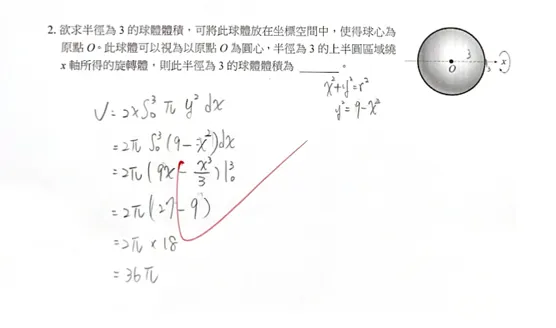 2. 欲求半徑為 3 的球體體積，可將此球體放在坐標空間中，使得球心為
原點 O。此球體可以視為以原點 O 為圓心，半徑為 3 的上半圓區域繞
x 軸所得的旋轉體，則此半徑為 3 的球體體積為 ______。
3
O
3
x
x²+y²=r²
y²=9-x²
V=2×∫₀³ π y² dx
=2π ∫₀³ (9-x²)dx
=2π (9x - x³/3)|₀³
=2π(27-9)
=2π × 18
=36π